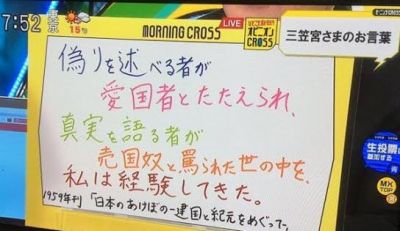 7:52
15℃
MORNING CROSS
LIVE
オピニオン
CROSS
三笠宮さまのお言葉
偽りを述べる者が
愛国者とたたえられ、
真実を語る者が
売国奴と罵られた世の中を、
私は経験してきた。
1959年刊「日本のあけぼの―建国と紀元をめぐって」
生投票
MX
TOP